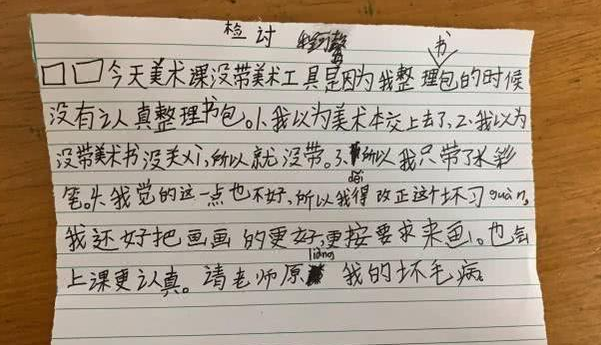 检讨
书
□□今天美术课没带美术工具是因为我整理包的时候
没有认真整理书包。1、我以为美术本交上去了,2、我以为
没带美术书没关xi,所以就没带。3、所以我只带了水彩
笔。我觉的这一点也不好,所以我得改正这个坏习guàn,
我还好把画画的更好,更按要求来画。也会
liàng
上课更认真。请老师原我的坏毛病。